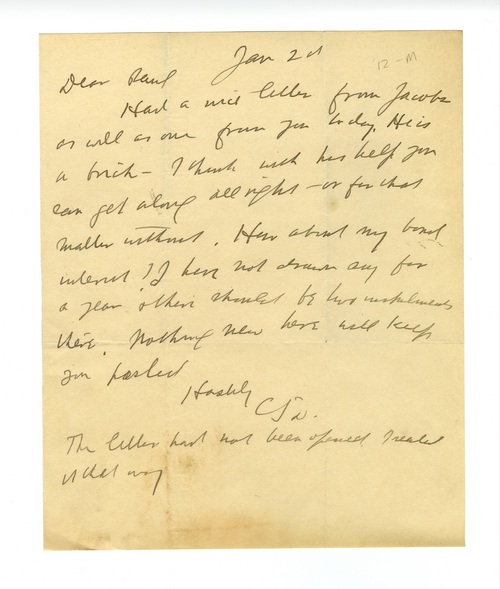 Jan 2d
'12-M
Dear Paul
Had a nice letter from Jacobs
as well as one from you today. He is
a brick - I think with his help you
can get along all right - or for that
matter without. How about my bond
interest? I have not drawn any for
a year, there should be two instalments
there. Nothing new here will keep
you posted
Hastily
CJD.
The letter had not been opened I sealed
it that way